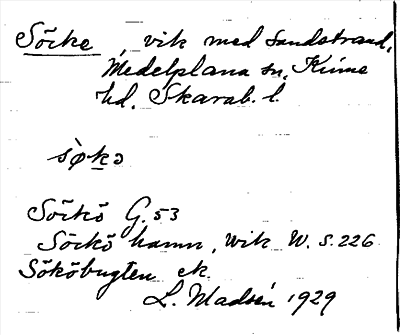 Söcke, vik med sandstrand,
Medelplana sn, Kinne
hd. Skarab. l.
s̀økə
Sörkö G. 53
Sörkö hamn, Wik W. s. 226
Sököbugten ek.
L. Madsén 1929